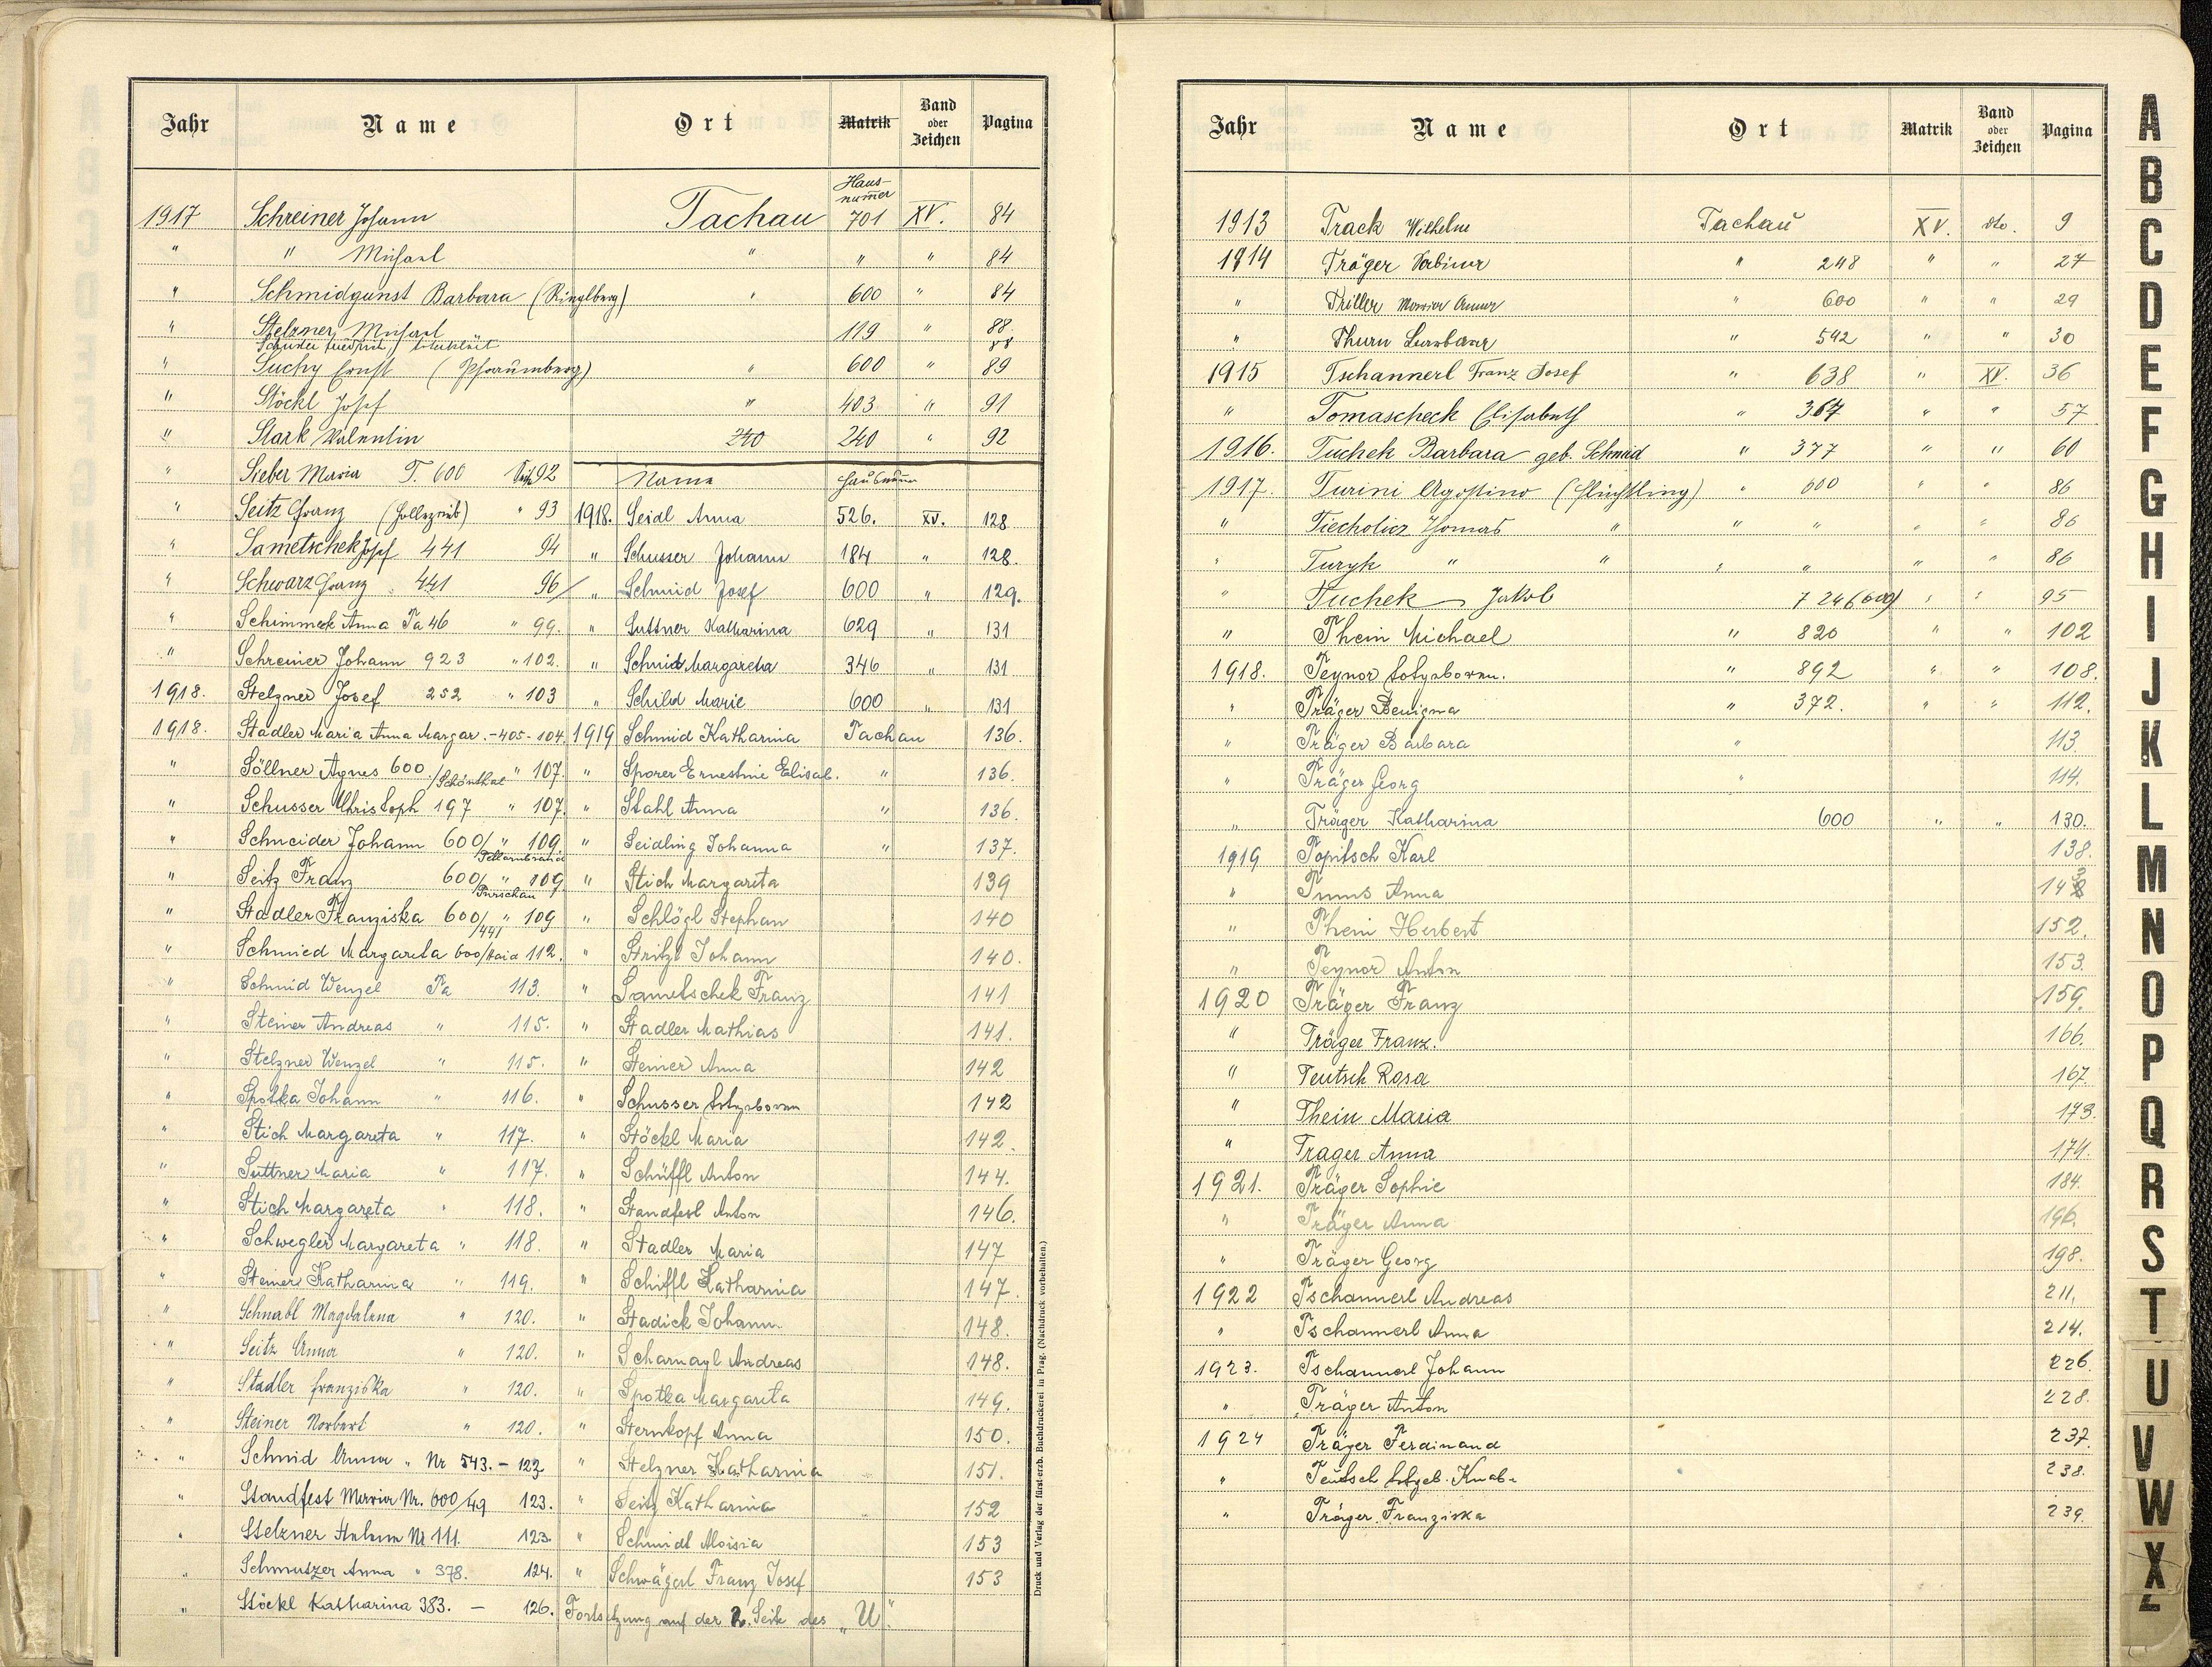 Jahr Name Ort Matrik Band oder Zeichen Pagina
Haus-
numer
1917 Schreiner Johann Tachau 701 XV. 84
" " Michael " " " 84
" Schmidgunst Barbara (Ringlberg) " 600 " 84
" Stelzner Michael 119 " 88.
88
" Suchy Ernst (Pfraumberg) " 600 " 89
" Stöckl Josef " 403 " 91
" Stark Valentin 240 240 " 92
" Sieber Maria T. 600 92 Name Hausnumer
" Seitz Franz " 93 1918. Seidl Anna 526. XV. 128
" Sametschek Josef 441 94 " Schusser Johann 184 " 128.
" Schwarz Franz 441 96 " Schmid Josef 600 " 129.
" Schimmek Anna Ta 46 " 99. " Suttner Katharina 629 " 131
" Schreiner Johann 923 " 102. " Schmid Margareta 346 " 131
1918. Stelzner Josef 252 " 103 " Schild Marie 600 " 131
1918. Stadler Maria Anna Margar. - 405 - 104. 1919 Schmid Katharina Tachau 136.
" Söllner Agnes 600. /Schönthal " 107. " Sporer Ernestine Elisab. " 136.
" Schusser Christoph 197 " 107. " Stahl Anna " 136.
" Schneider Johann 600/ " 109. " Seidling Johanna " 137.
" Seitz Franz 600/ Purschau " 109. " Stich Margareta 139
" Stadler Franziska 600/441 " 109 " Schlögl Stephan 140
" Schmied Margareta 600/Haid 112. " Stritzl Johann 140.
" Schmid Wenzel Ta 113. " Sametschek Franz 141
" Steiner Andreas " 115. " Stadler Mathias 141.
" Stelzner Wenzel " 115. " Steiner Anna 142
" Spotka Johann " 116. " Schusser totgeboren 142
" Stich Margareta " 117. " Stöckl Maria 142.
" Suttner Maria " 117. " Schüffl Anton 144.
" Stich Margareta " 118. " Standfest Anton 146.
" Schwegler Margareta " 118. " Stadler Maria 147
" Steiner Katharina " 119. " Schiffl Katharina 147.
" Schnabl Magdalena " 120. " Stadick Johann. 148.
" Seitz Anna " 120. " Scharnagl Andreas 148.
" Stadler Franziska " 120. " Spotka Margareta 149.
" Steiner Norbert " 120. " Sternkopf Anna 150.
" Schmid Anna " Nr 543. - 123 " Stelzner Katharina 151.
" Standfest Maria Nr. 600/49 123. " Seitz Katharina 152
" Stelzner Nr 111. 123. " Schmidt Aloisia 153
" Schmutzer Anna " 378. 124. " Schwägerl Franz Josef 153
" Stöckl Katharina 383. - 126. Fortsetzung auf der 2. Seite des „U".
Druck und Verlag der fürst-erzb. Buchdruckerei in Prag. (Nachdruck vorbehalten.)
Jahr Name Ort Matrik Band oder Zeichen Pagina
1913 Track Wilhelm Tachau XV. dto. 9
1914 Träger Sabina " 248 " " 27
" Triller Maria Anna " 600 " " 29
" Thurn Barbara " 542 " " 30
1915 Tschannerl Franz Josef " 638 " XV. 36
" Tomascheck Elisabeth " 367 " " 57
1916. Tuchek Barbara geb. Schmid " 377 " " 60
1917. Turini Agostino (Flüchtling) " 600 " " 86
" Tiecholicz Thomas " " " " " 86
" Turyk " " " " " " 86
" Tuchek Jakob " " 95
" Thein Michael " 820 " " 102
1918. Teynor totgeboren. " 892 " " 108.
" Träger Benigna " 372. " " 112.
" Träger Barbara " 113.
" Träger Georg " 114.
" Träger Katharina 600 " " 130.
1919 Topitsch Karl 138.
" Tinns Anna 143
" Thein Herbert 152.
" Teynor Anton 153.
1920 Träger Franz 159.
" Träger Franz. 166.
" Teutsch Rosa 167.
" Thein Maria 173.
" Trager Anna 174.
1921. Träger Sophie 184.
" Träger Anna 196.
" Träger Georg 198.
1922 Tschannerl Andreas 211.
" Tschannerl Anna 214.
1923. Tschannerl Johann 226.
" Träger Anton 228.
1924 Träger Ferdinand 237.
" Teutsch totgeb. Knabe 238.
" Träger Franziska 239.
A
B
C
D
E
F
G
H
I
J
K
L
M
N
O
P
Q
R
S
T
U
V
W
X
Z